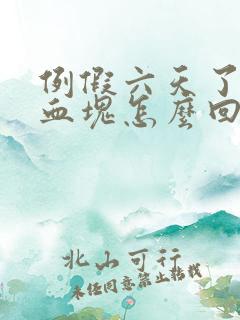 例假六天了
血塊怎麼回
北山可行
未经同意禁止转载